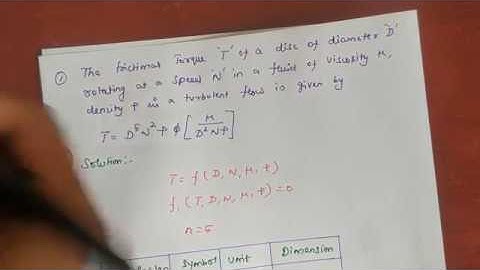 ① The frictional Torque 'T' of a disc of diameter 'D'
rotating at a speed 'N' in a fluid of viscosity μ,
density ρ in a turbulent flow is given by
T = D⁵N²ρ φ [μ / D²Nρ]
Solution:-
T = f(D, N, μ, ρ)
f₁(T, D, N, μ, ρ) = 0
n = 5
Symbol Unit Dimension